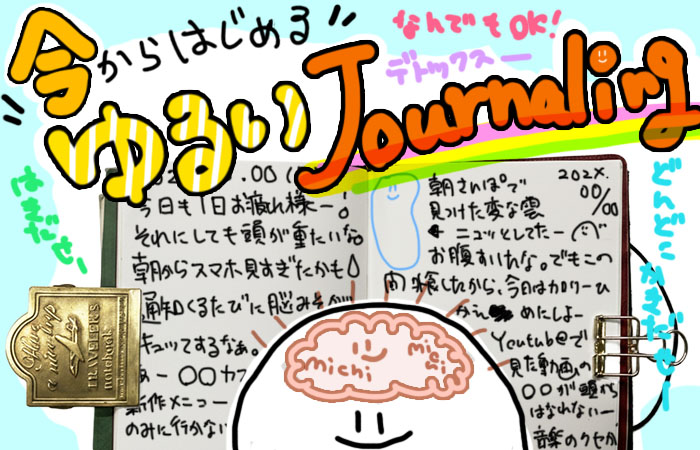 "今からはじめる"
なんでもOK!
デトックスー
ゆるいJournaling
はきだせー
どんどんかきだせー
.00
今日も1日お疲れ様ー!
それにしても頭が重たいな。
朝からスマホ見すぎたかも
通知くるたびに脳みそが
キュッてするなぁ。
あー〇〇カフ
新作メニュー
のみに行かない
202X.
00/00
朝さんぽで
見つけた変な雲
ニュッとしてたー
お腹すいたな。でもこの
したから、今日はカロリーひ
めたしよー
Youtub@で
見た動画の
〇〇が頭から
はなれないー
音楽のクセが
michi
michi
Have
a nice trip
TRAVELER'S
notebook